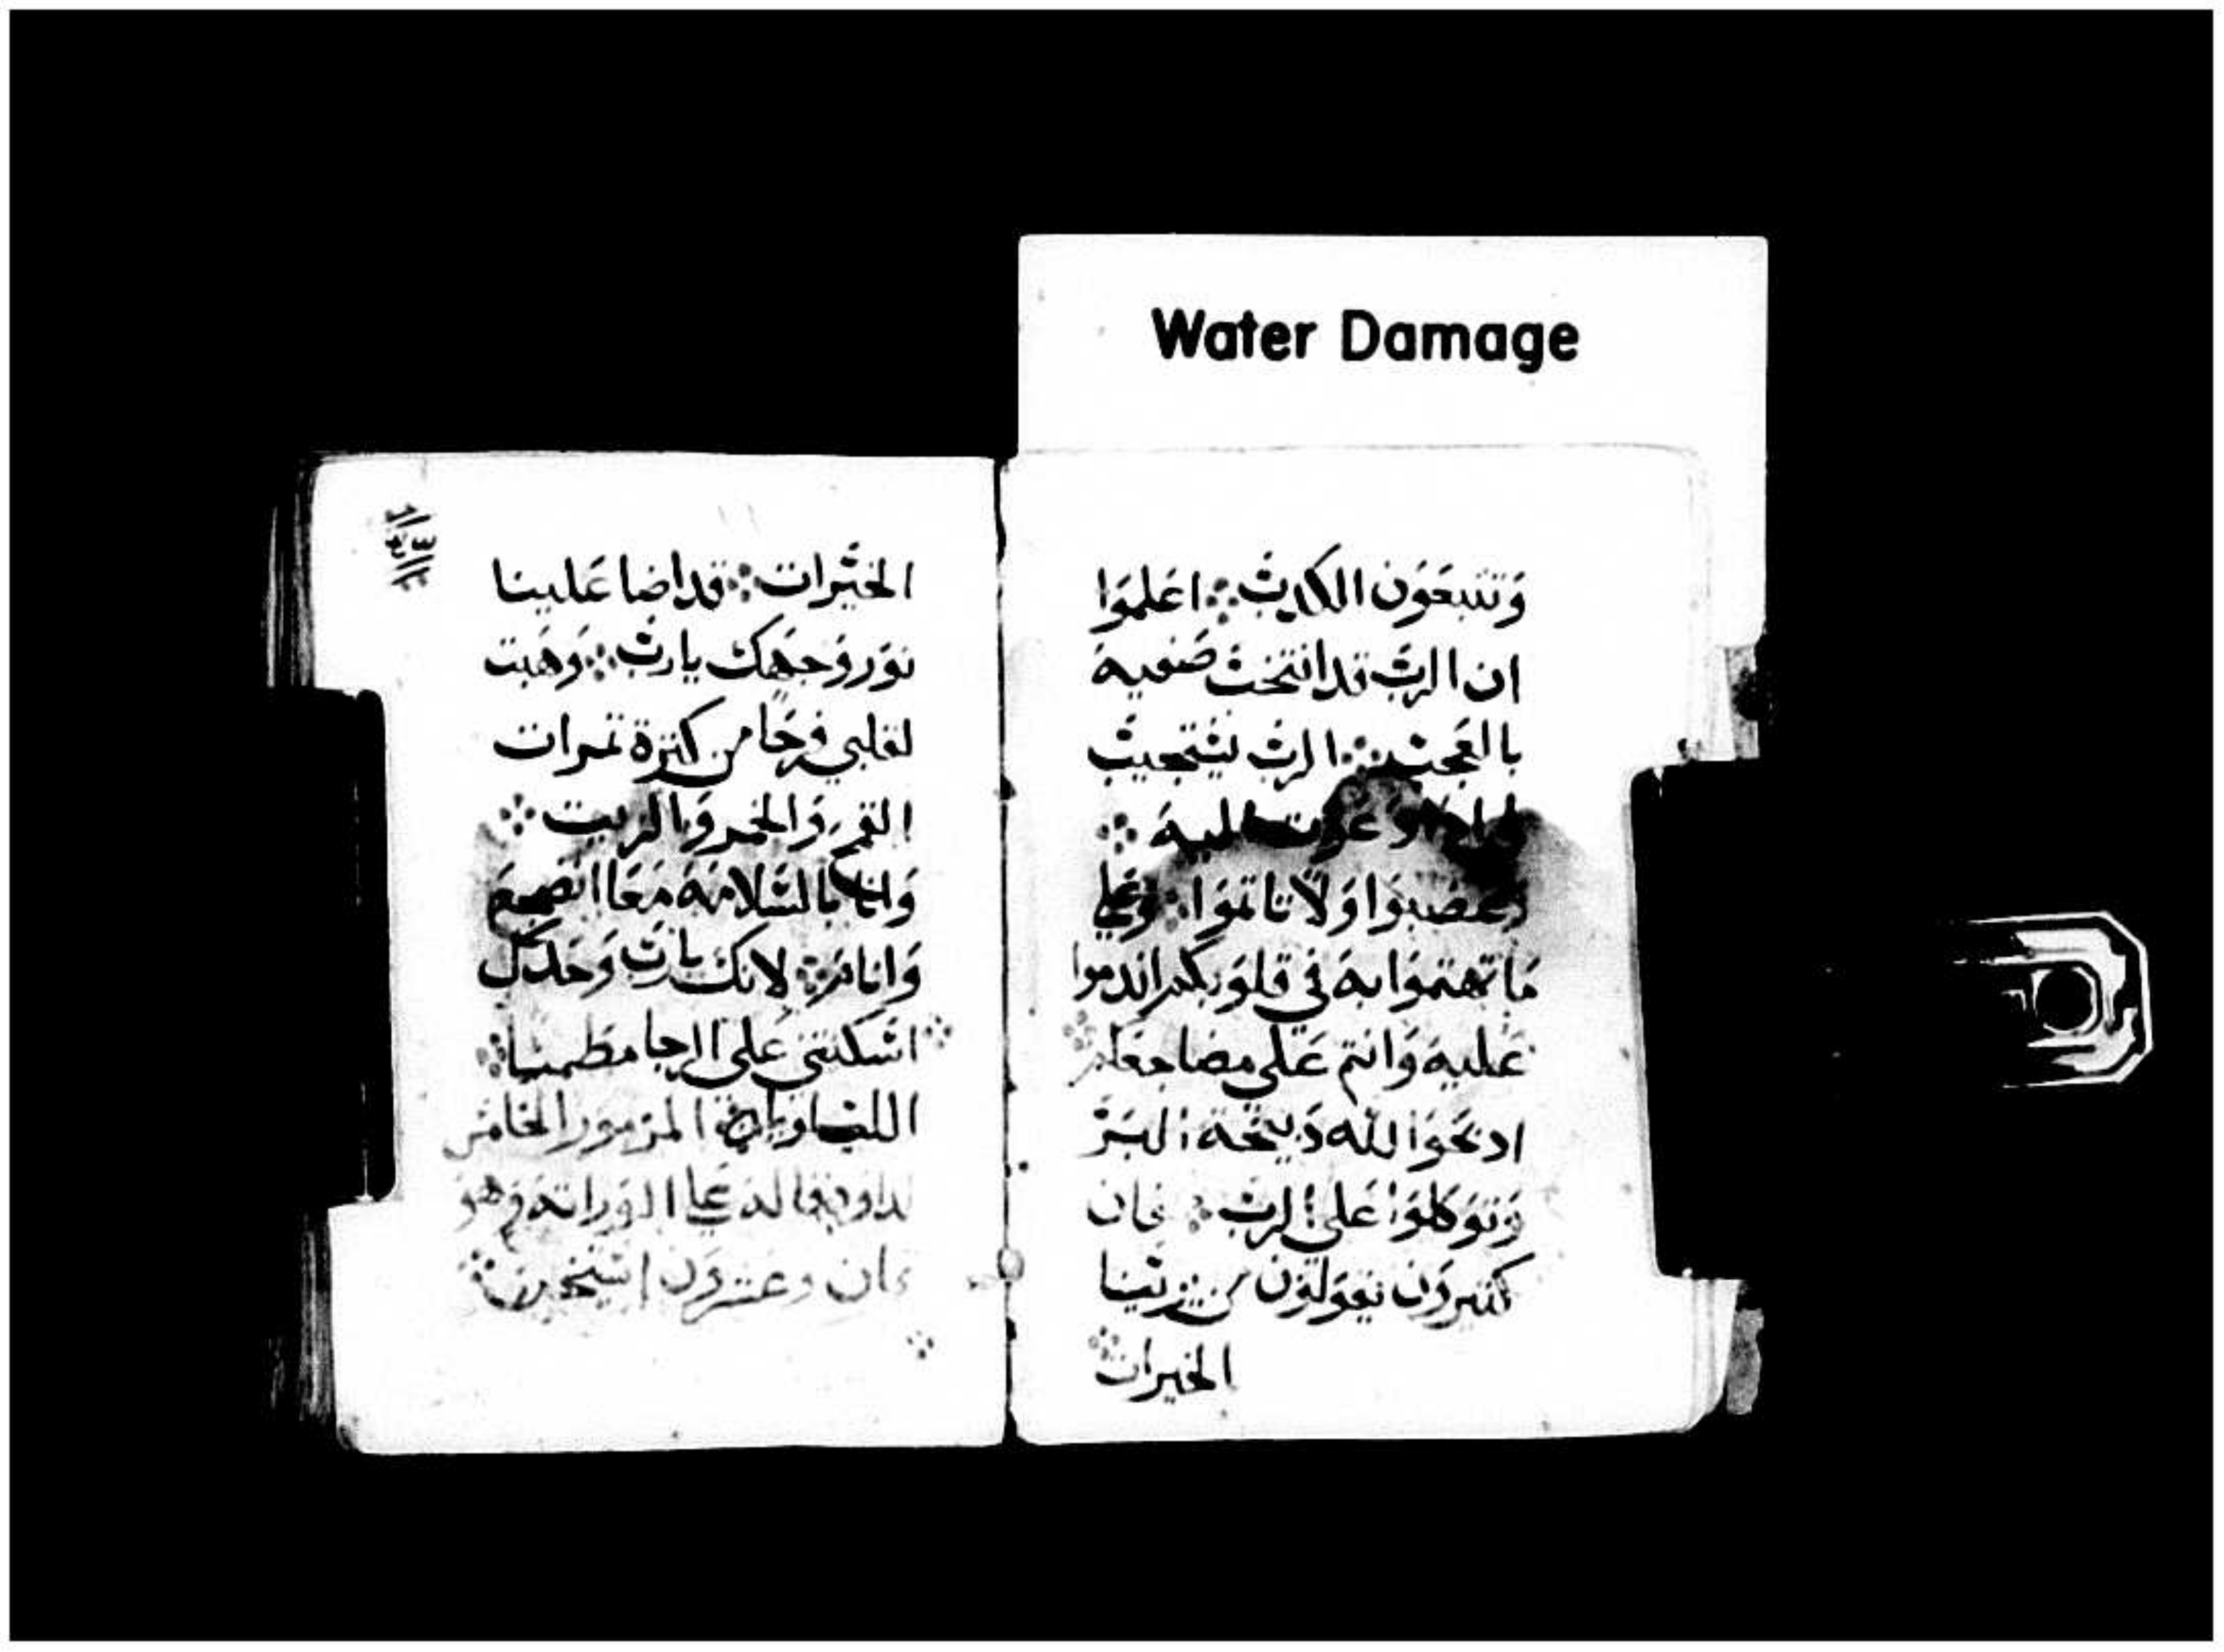 Water Damage
وَتتبعَوَن الكدبَ ❖ اعَلمَوا
ان الربَ قد انتخبَ صَفيه
بالعَجبَ ❖ الربَ يستجيبَ
دعَوت اليه ❖
اغضبوَا وَلا تاثموَا ❖ وَعَلي
مَا تهتموَا به في قلوَبكم اندموا
عَليه وَانتم عَلي مضاجعَكم ❖
ادبحَوَا لله دَبيحَة البَر
وَتوَكلوَا عَلي الربَ ❖ فان
كتيروَن يقوَلوَن من يرينا
الخيرات ❖
الخيَرات ❖ قد اضا عَلينا
نوَر وَجهَك يا ربَ ❖ وَهَبت
لقلبي فرحَا من كترة تمرات
القمح وَالخمر وَالزيت ❖
وَانا بالسَلامَة مَعَا اضجعَ
وَانام ❖ لانك يا ربَ وَحَدك
اسَكنتني عَلي الرجا مطمينا ❖
الليلويا المزمور الخامس
لداود عَلي الوراثة وهو
تمان وعَشروَن استيخن ❖